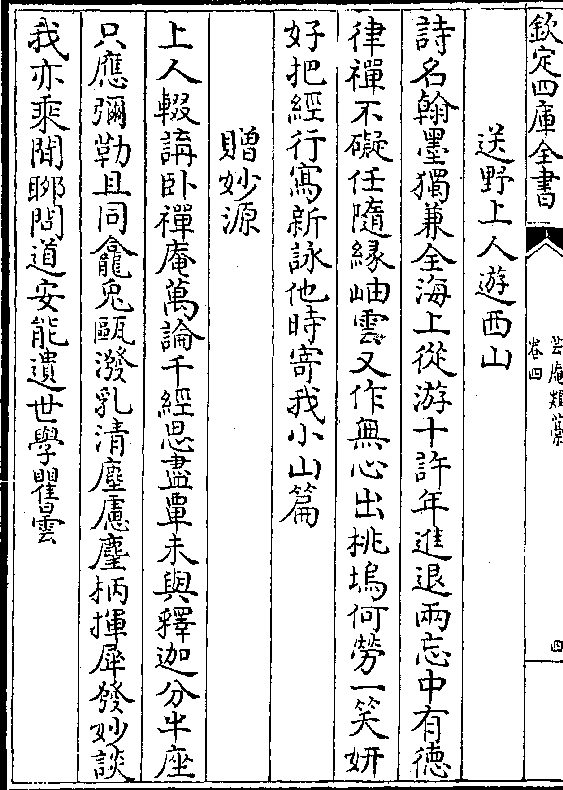 欽定四庫全書
芸庵類藁
卷四
四
送野上人遊西山
詩名翰墨獨兼全海上從游十許年進退兩忘中有德
律禪不礙任隨緣岫雲又作無心出桃塢何勞一笑妍
好把經行寫新詠他時寄我小山篇
贈妙源
上人輟講卧禪庵萬論千經思盡覃未與釋迦分半座
只應彌勒且同龕兔甌潑乳清塵慮麈柄揮犀發妙談
我亦乘閒聊問道安能遺世學瞿曇